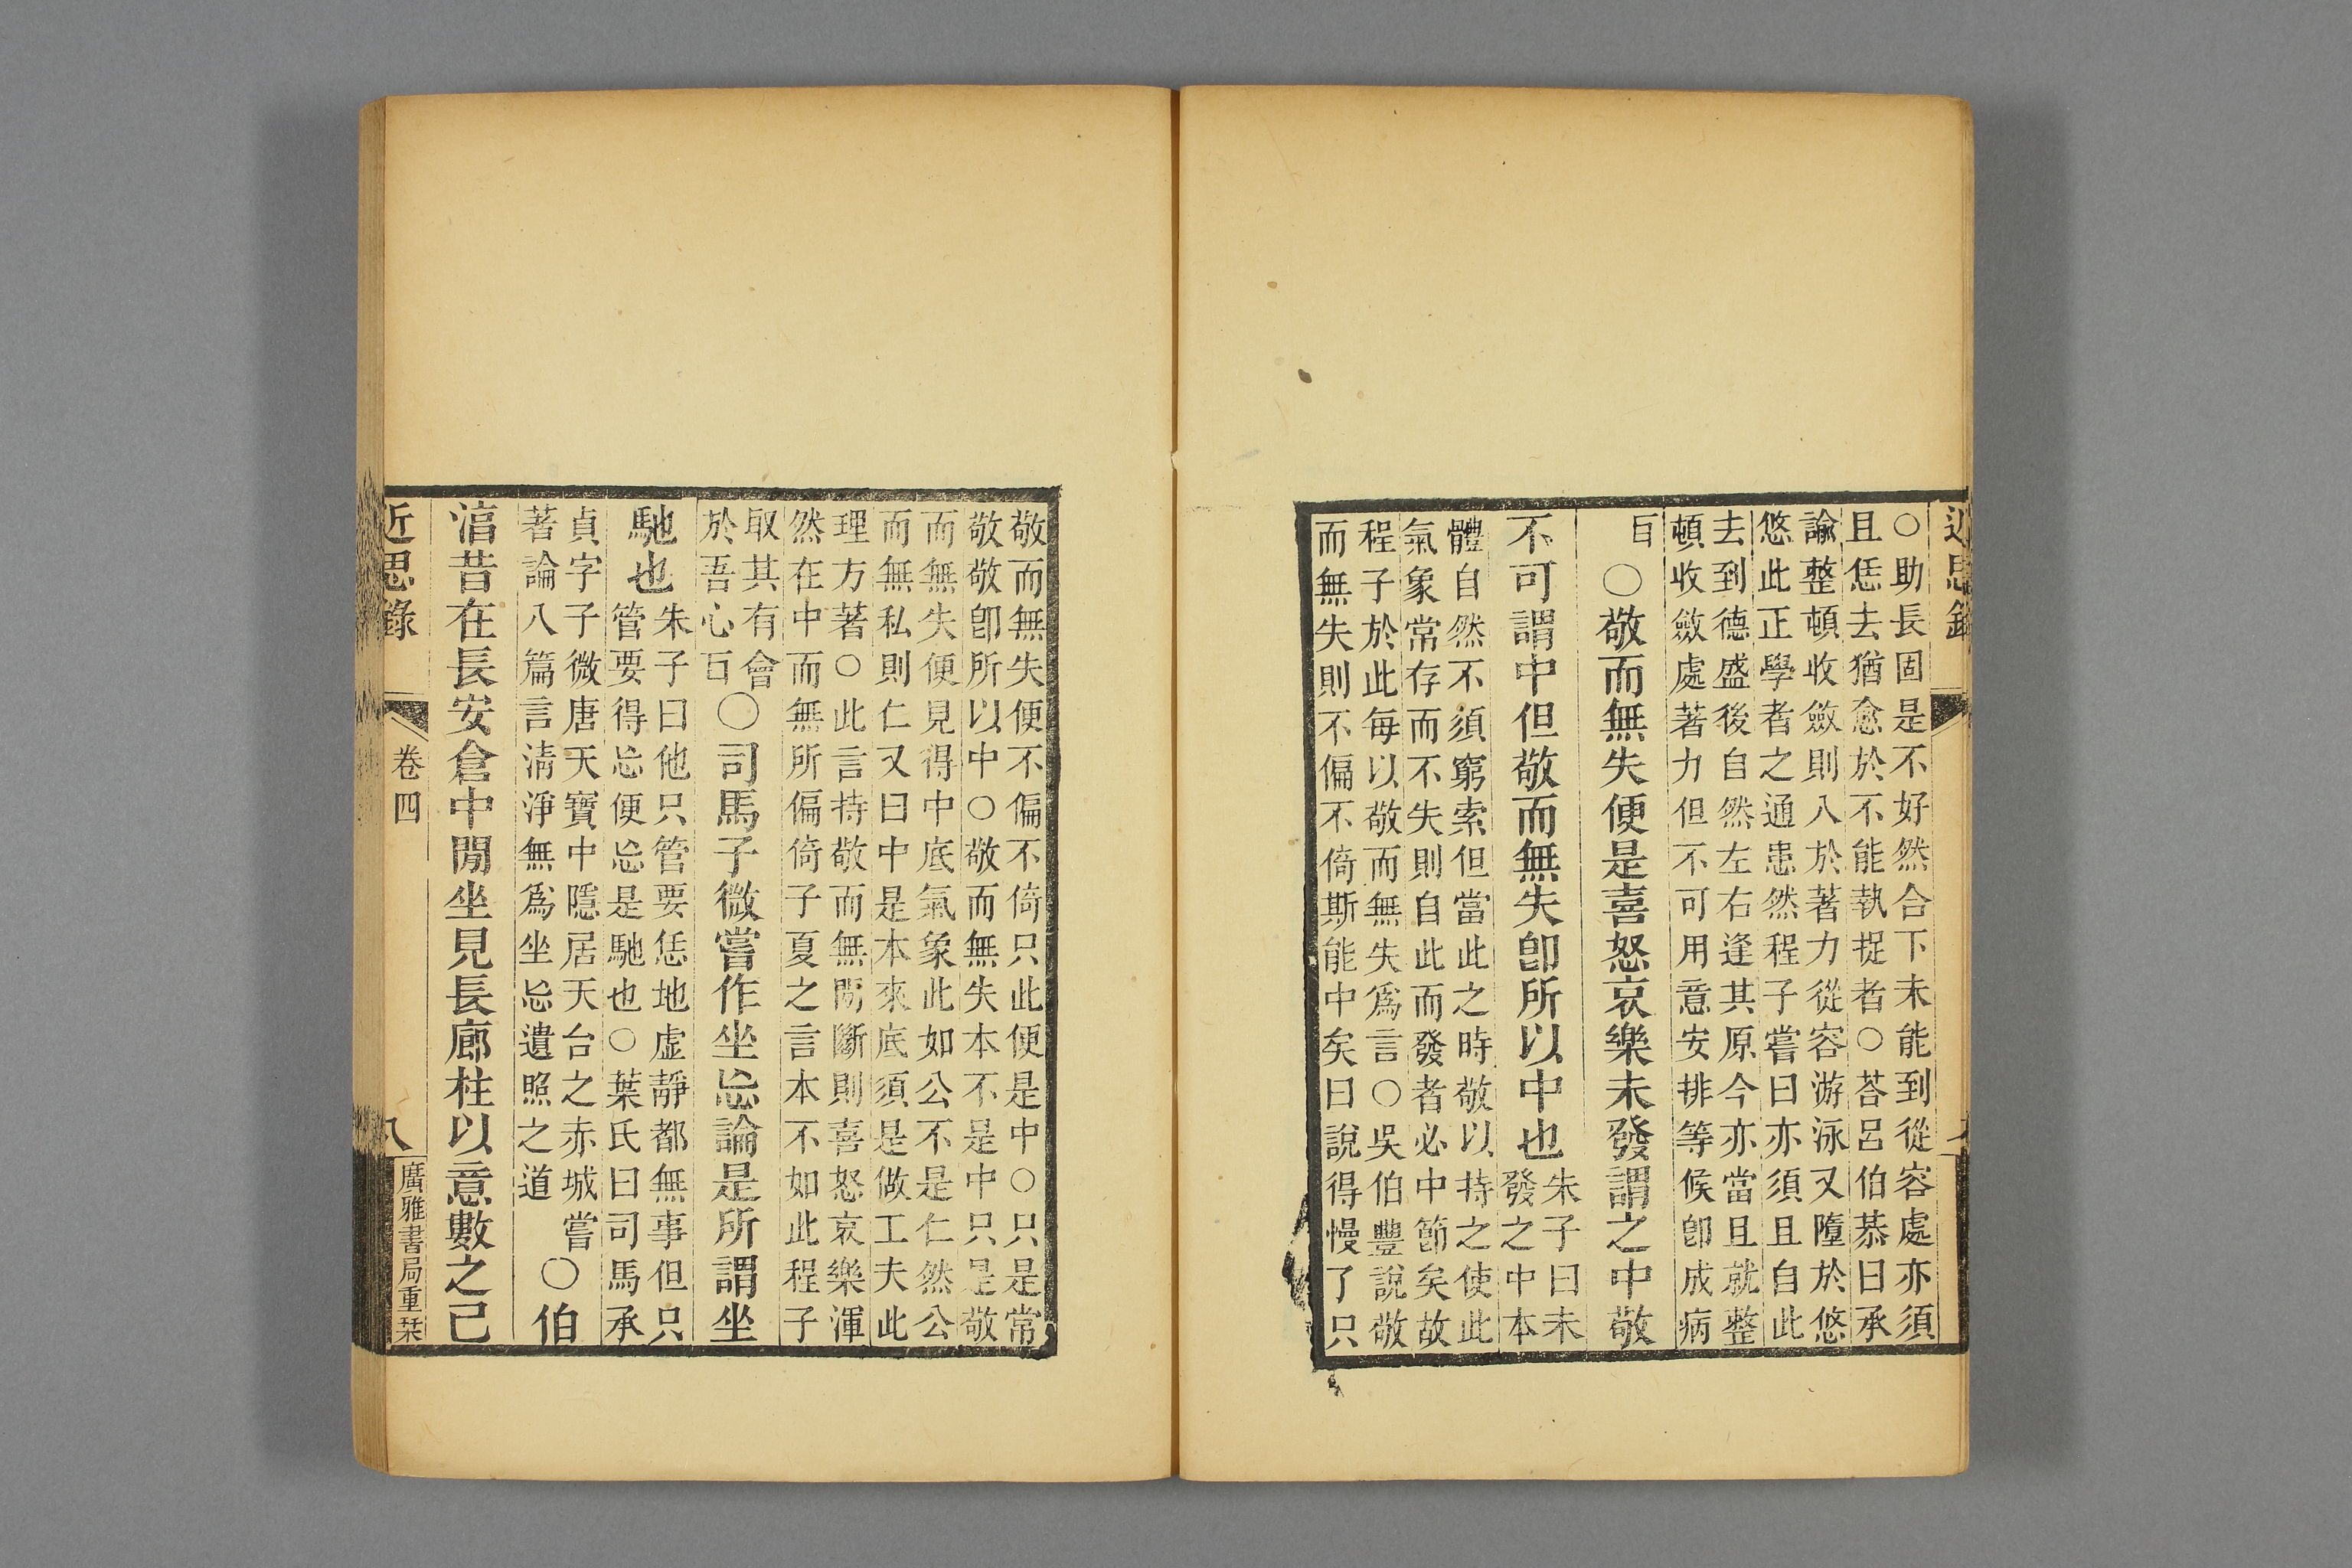 近思錄
○助長固是不好然合下未能到從容處亦須
且恁去猶愈於不能執捉者○荅呂伯恭曰承
諭整頓收斂則入於著力從容游泳又墮於悠
悠此正學者之通患然程子嘗曰亦須且自此
去到德盛後自然左右逢其原今亦當且就整
頓收斂處著力但不可用意安排等候卽成病
百
○敬而無失便是喜怒哀樂未發謂之中敬
不可謂中但敬而無失卽所以中也
朱子曰未
發之中本
體自然不須窮索但當此之時敬以持之使此
氣象常存而不失則自此而發者必中節矣故
程子於此每以敬而無失爲言○吳伯豐說敬
而無失則不偏不倚斯能中矣曰說得慢了只
敬而無失便不偏不倚只此便是中○只是常
敬敬卽所以中○敬而無失本不是中只是敬
而無失便見得中底氣象此如公不是仁然公
而無私則仁又曰中是本來底須是做工夫此
理方著○此言持敬而無閒斷則喜怒哀樂渾
然在中而無所偏倚子夏之言本不如此程子
取其有會
於吾心百
○司馬子微嘗作坐忘論是所謂坐
馳也
朱子曰他只管要恁地虛靜都無事但只
管要得忘便忘是馳也○葉氏曰司馬承
貞字子微唐天寶中隱居天台之赤城嘗
著論八篇言淸淨無爲坐忘遺照之道
○伯
淳昔在長安倉中閒坐見長廊柱以意數之已
近思錄
卷四
八
廣雅書局重栞